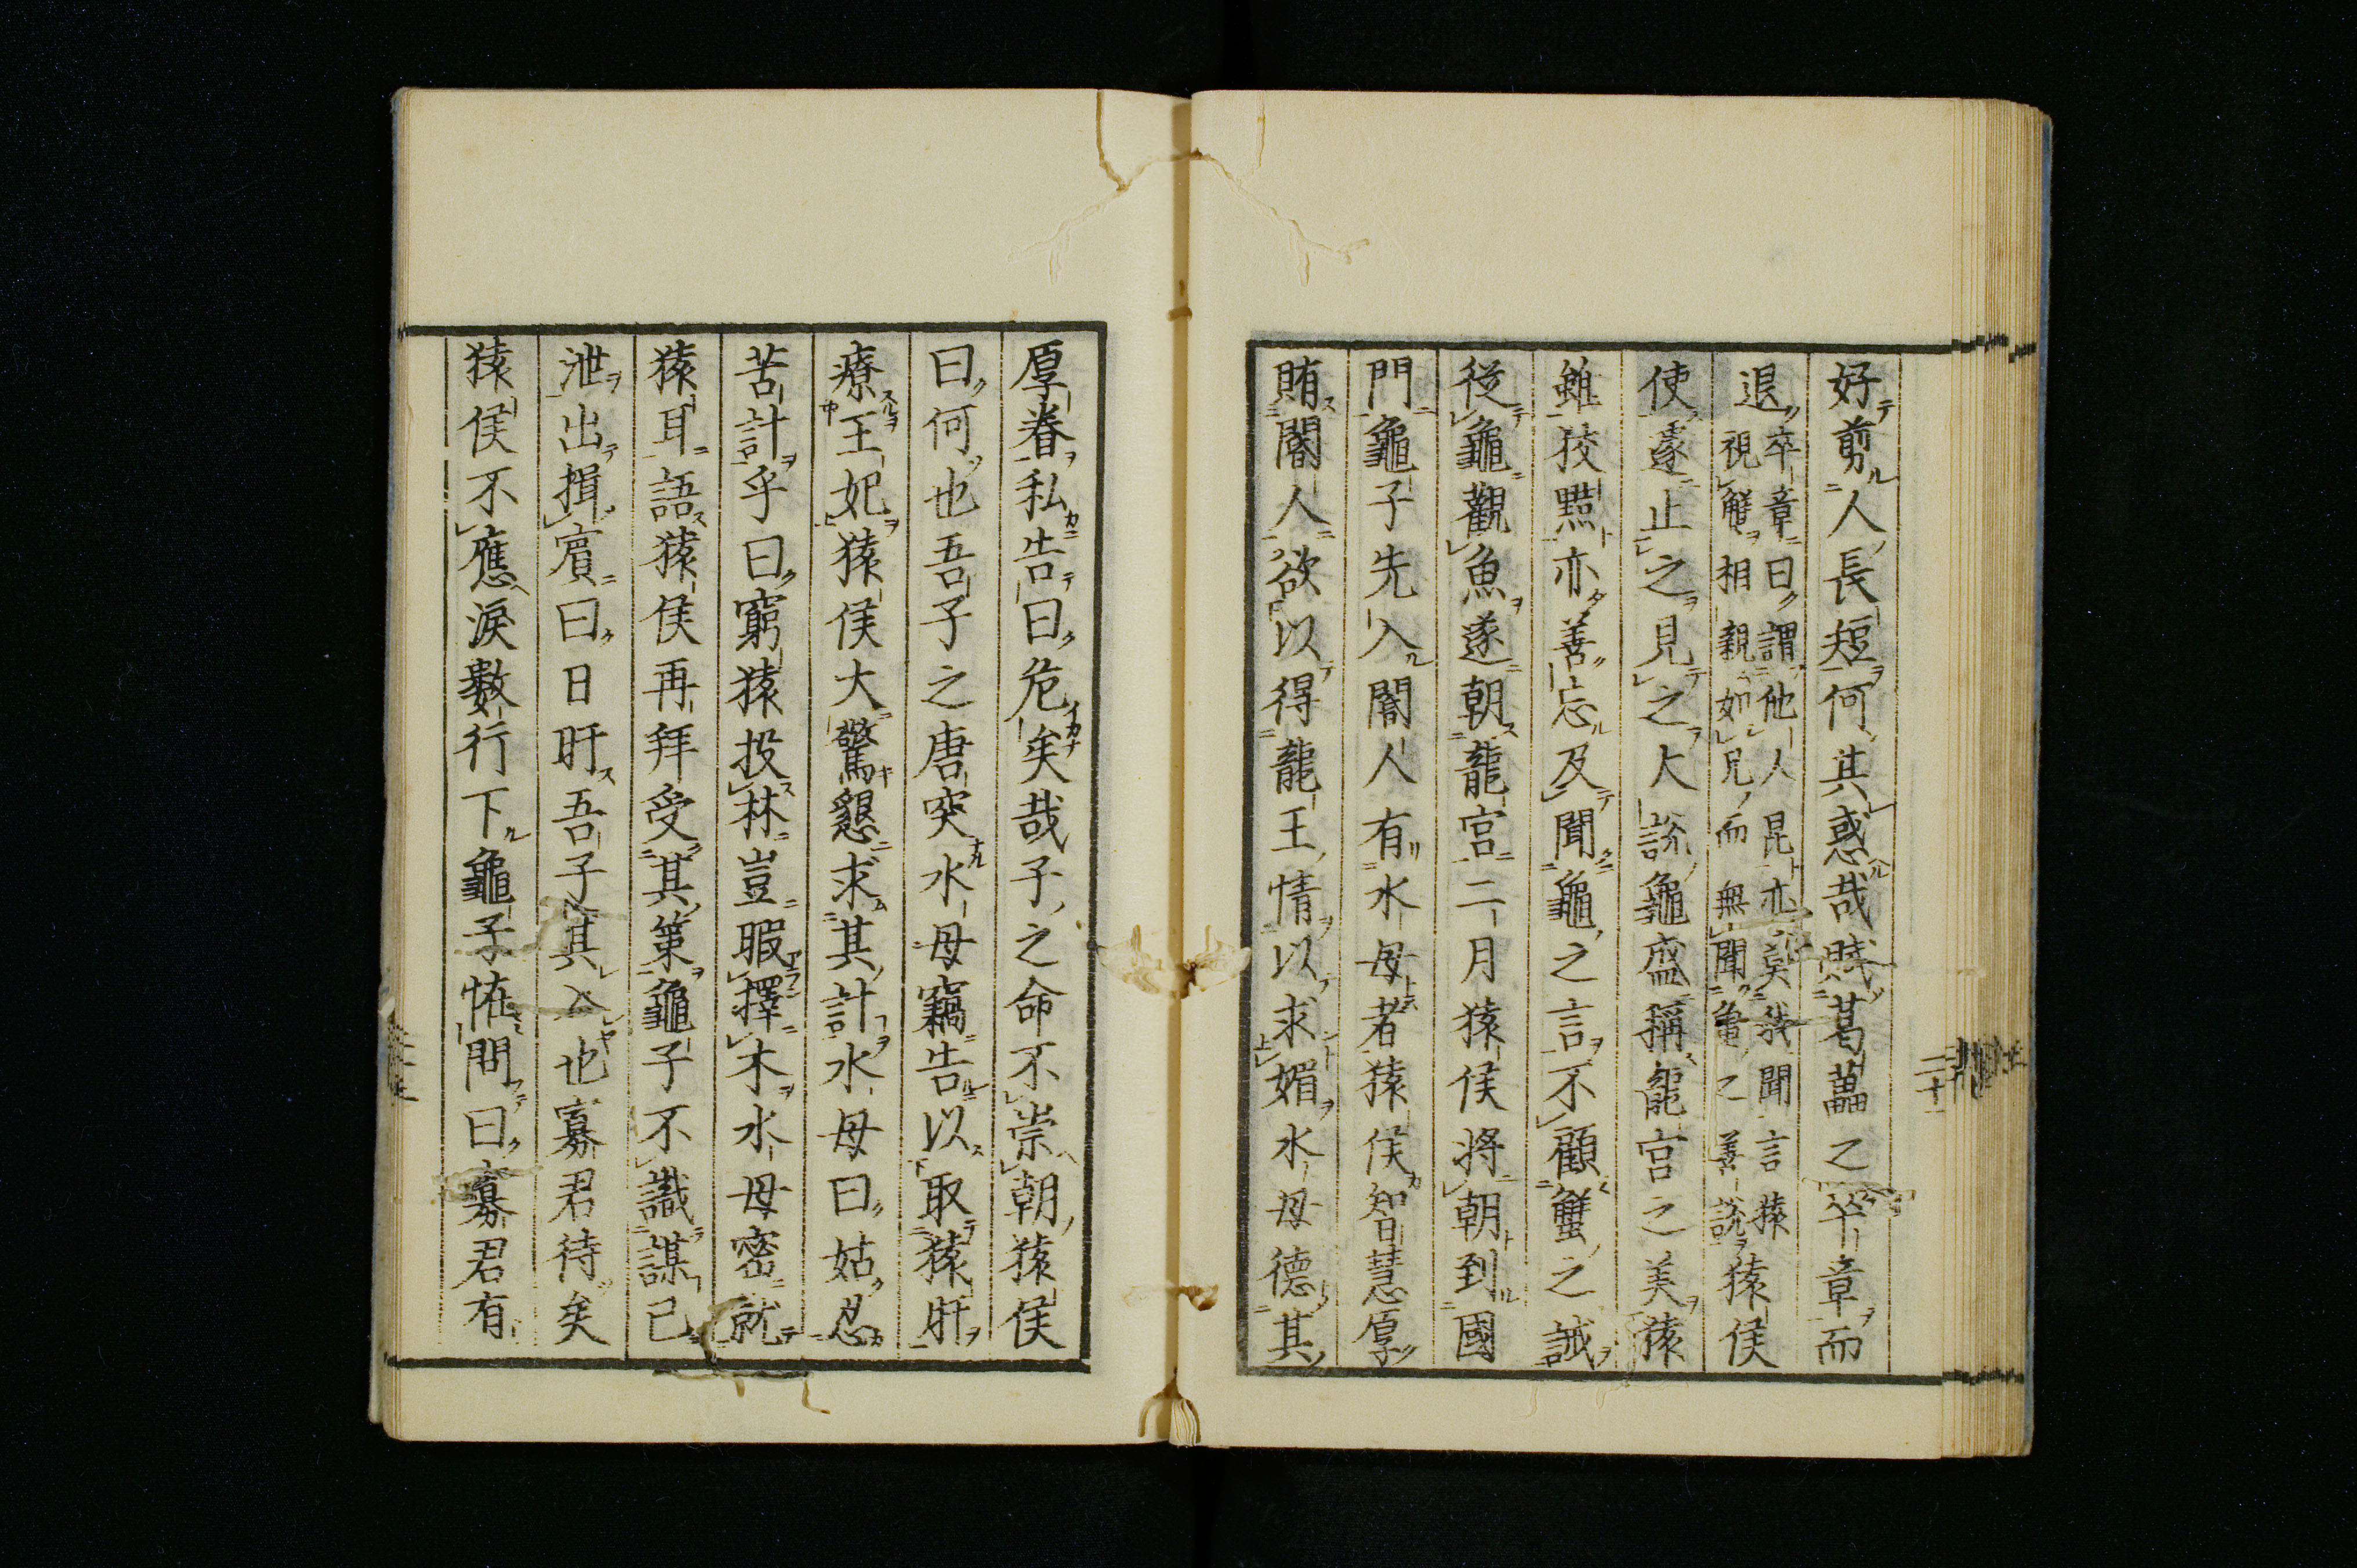 好剪人長短何其惑哉賤葛藟之卒章而
退卒章曰謂他人昆亦莫我聞言猿
視蟹相親如兄而無聞龜之善說猿侯
使遂止之見之大說龜盛稱龍宮之美猿
雖狡黠亦善忘及聞龜之言不顧蟹之誡
從龜觀魚遂朝龍宮二月猿侯將朝到國
門龜子先入閽人有水母者猿侯智慧厚
賄閽人欲以得龍王情以求媚水母德其
厚眷私告曰危矣哉子之命不崇朝猿侯
曰何也吾子之唐突水母竊告以取猿肝
療王妃猿侯大驚懇求其計水母曰姑忍
苦計乎曰窮猿投林豈暇擇木水母密就
猿耳語猿侯再拜受其策龜子不識謀已
泄出揖賓曰日旰吾子其入也寡君待矣
猿侯不應淚數行下龜子恠問曰寡君有
二十一